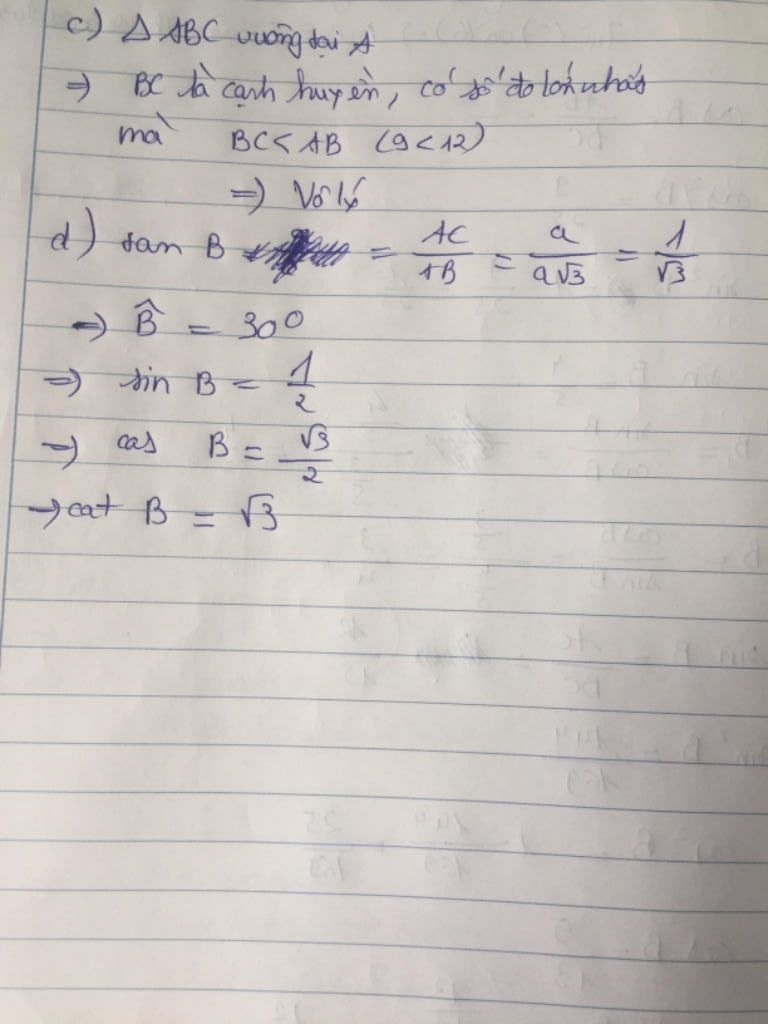 c) Δ ABC vuông tại A
=> BC là cạnh huyền, có số đo lớn nhất
mà BC < AB (9 < 12)
=> Vô lý
d) tan B = AC/AB = a/a√3 = 1/√3
=> B̂ = 30°
=> sin B = 1/2
=> cos B = √3/2
=> cot B = √3